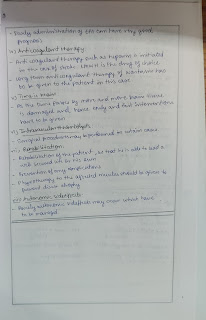 - Early administration of tPA can have very good
prognosis.
iv) Anticoagulant therapy:
- Anti coagulant therapy such as heparin is initiated
in the case of stroke. Heparin is the drug of choice
long term anti coagulant therapy of warfarin has
to be given to the patient in this case
v) Time is brain
- As the time passes by more and more brain tissue
is damaged well, hence study and fast interventions
have to be given
vi) Intraarterial thrombolysis
- Surgical procedure may be performed in certain cases
vii) Rehabilitation:
- Rehabilitation of the patient, so that he is able to lead a
well
- Prevention of any complications
- Physiotherapy to the affected muscles should be given to
prevent disuse atrophy
viii) Autonomic sideeffects
- Usually autonomic sideeffects may occur which have
to be managed.